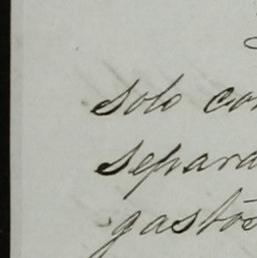 solo con
separa
gastos